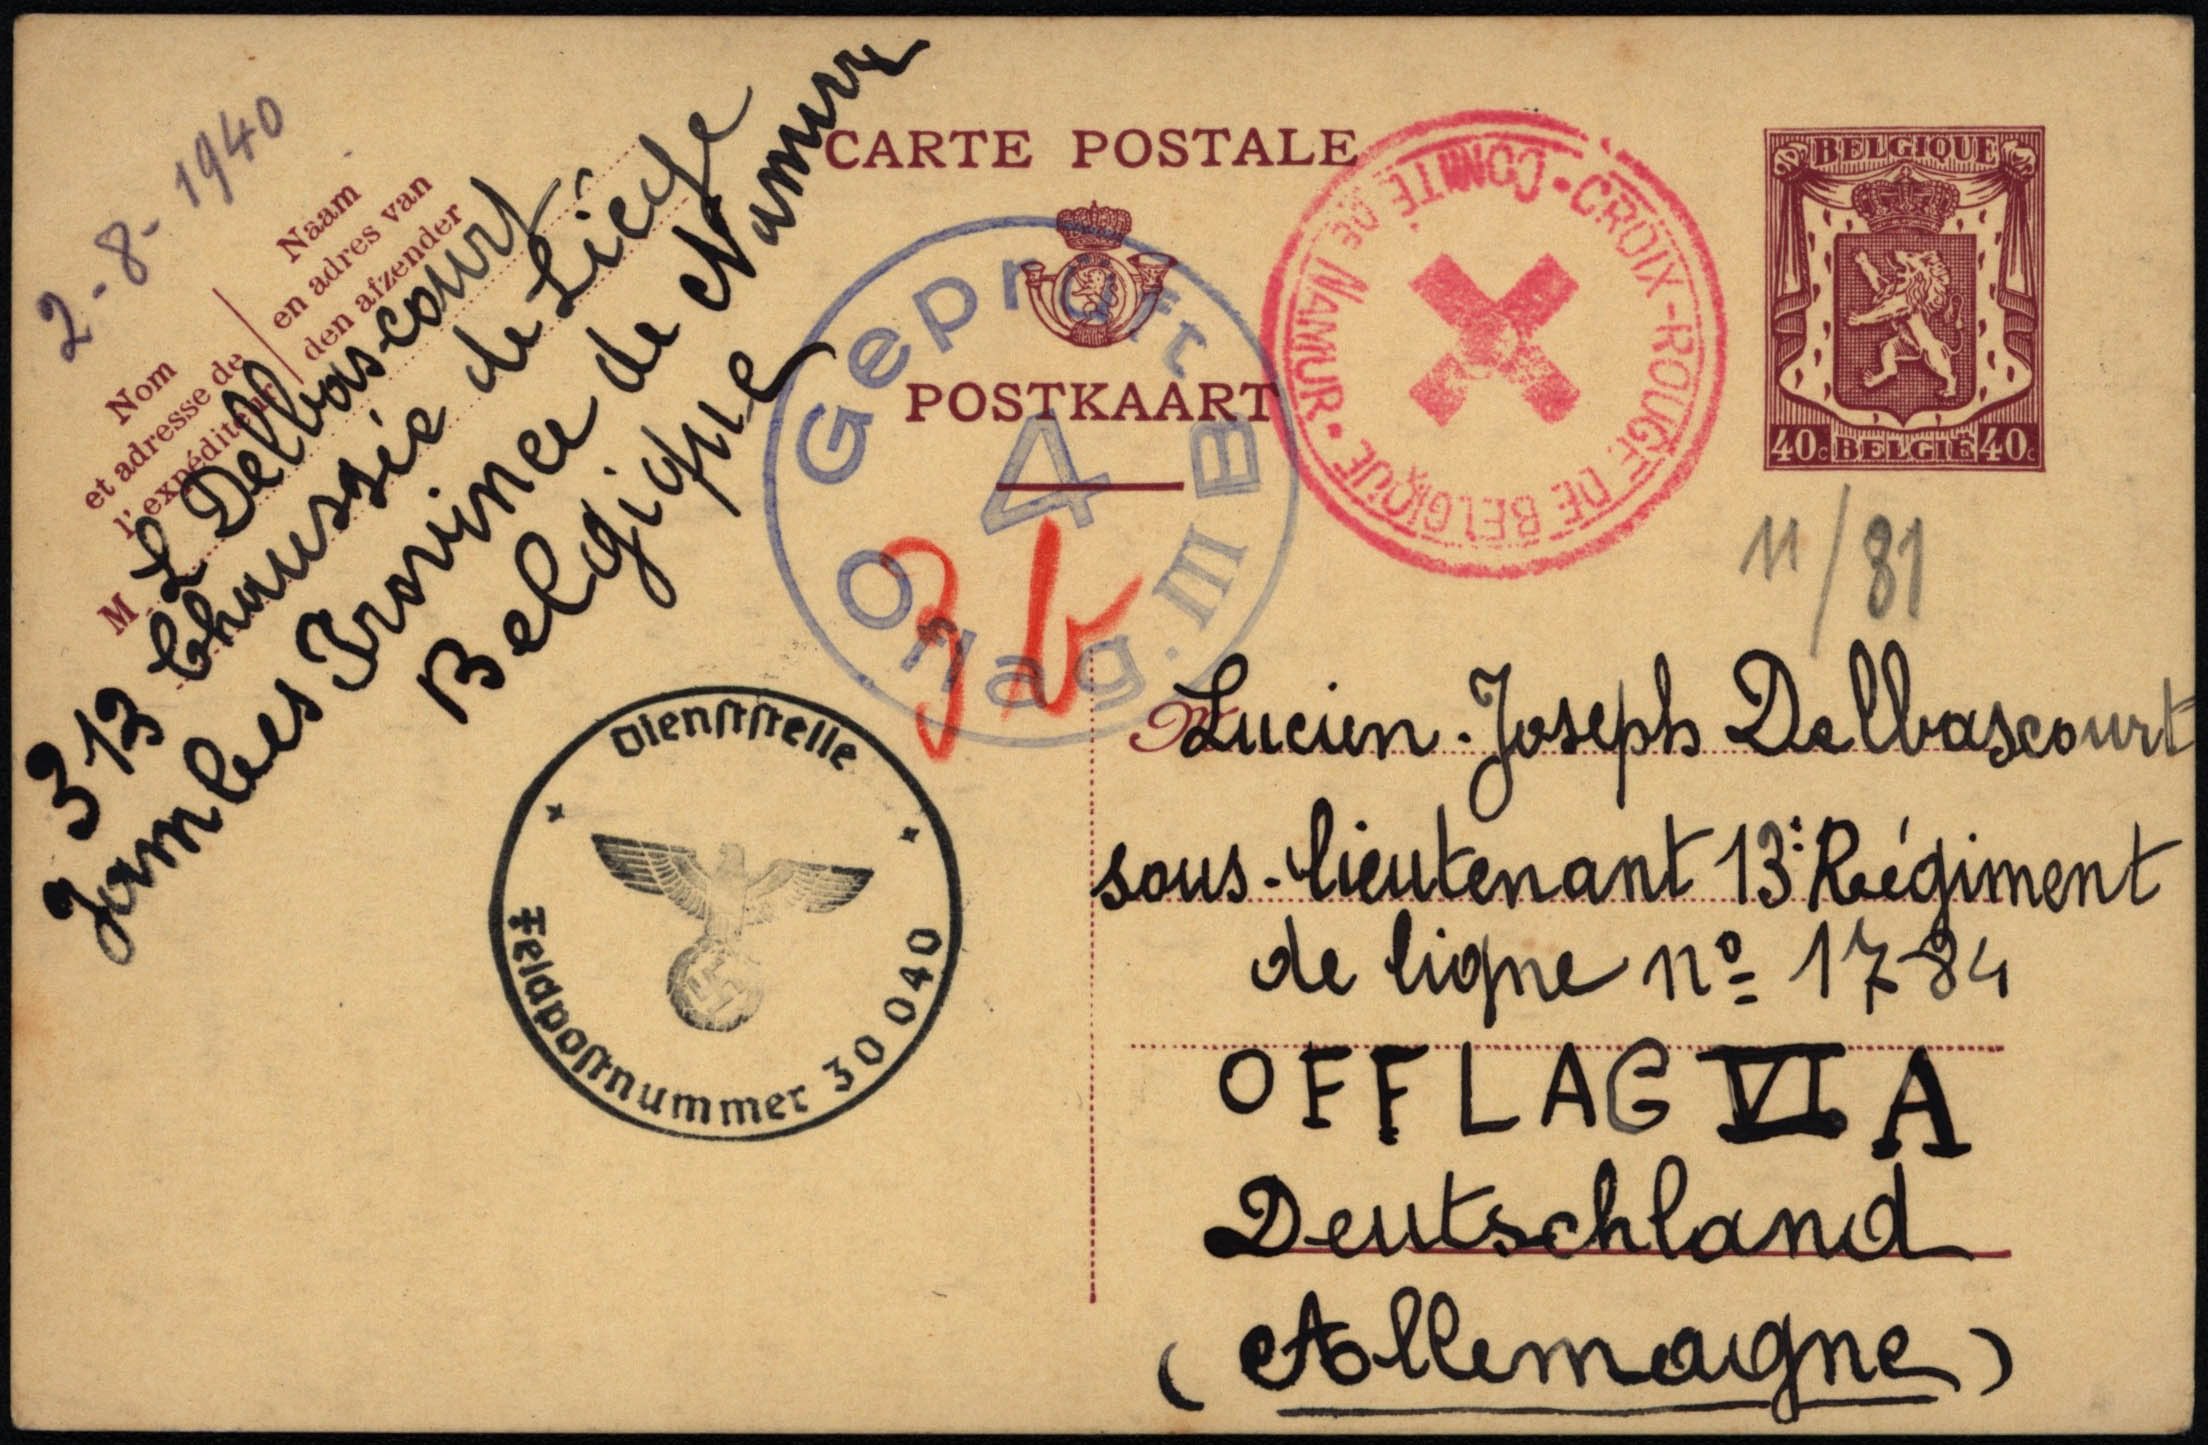 2-8-1940
Naam
en adres van
den afzender
Nom
et adresse de
l'expéditeur
M L Delbascourt
313 Chaussée de Liège
Jambes Province de Namur
Belgique
CARTE POSTALE
POSTKAART
Geprüft
4
Oflag. III B
CROIX-ROUGE DE BELGIQUE • COMITÉ DE NAMUR •
BELGIQUE
40c BELGIE 40c
11/81
Dienststelle
Feldpostnummer 30 040
M Lucien-Joseph Delbascourt
sous-lieutenant 13e Régiment
de ligne nº 1784
OFFLAG VI A
Deutschland
(Allemagne)